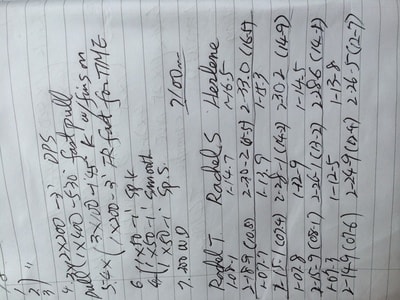 1)
2) "
3)
4. 2x(2x200-3' DPS
pull(1x400-530 fast pull
5. 4x(3x100-145 K w/fins on
(1x200-3' IR fast for TIME
6. (1x50-1' Sp K
4x(1x50-1' Smooth
(1x50-1' Sp. S.
7. 200 W.D 7100m
Rachel T Rachel S Herlene
1-08.1 1-14.7 1-16.5
2-18.9 (10.8) 2-30-2 (15-5) 2-33.0 (16-5)
1-07.7 1-13.9 1-15.3
2-15-1 (07.4) 2-28-1 (14-2) 2-30.2 (14-9)
1-07.8 1-12-9 1-14-5
2-15-9 (08-1) 2-26-1 (13-2) 2-28.6 (14-1)
1-07.3 1-12-5 1-13.8
2-14.9 (07-6) 2-24.9 (12-4) 2-26-5 (12-7)